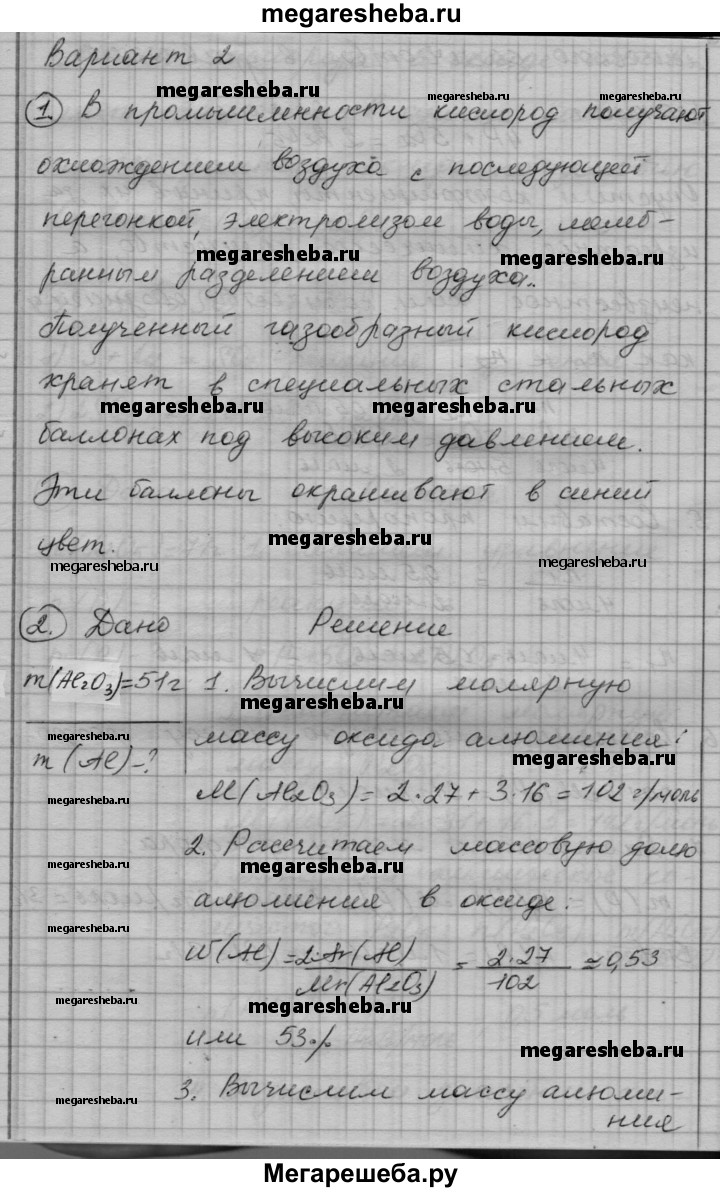 megaresheba.ru
Вариант 2
megaresheba.ru megaresheba.ru
1. В промышленности кислород получают
охлаждением воздуха с последующей
перегонкой, электролизом воды, мемб-
megaresheba.ru megaresheba.ru
ранным разделением воздуха.
Полученный газообразный кислород
хранят в специальных стальных
megaresheba.ru megaresheba.ru
баллонах под высоким давлением.
Эти баллоны окрашивают в синий
megaresheba.ru
цвет.
megaresheba.ru megaresheba.ru
2. Дано Решение
m(Al2O3)=51г 1. Вычислим молярную
megaresheba.ru
megaresheba.ru массу оксида алюминия:
m(Al)-? megaresheba.ru
M(Al2O3)=2·27+3·16=102 г/моль
megaresheba.ru
2. Рассчитаем массовую долю
megaresheba.ru
алюминия в оксиде:
megaresheba.ru
W(Al)=2·Ar(Al)/Mr(Al2O3)=2·27/102≈0,53
megaresheba.ru megaresheba.ru
или 53%
megaresheba.ru
3. Вычислим массу алюми-
megaresheba.ru
ния
Мегарешеба.ру